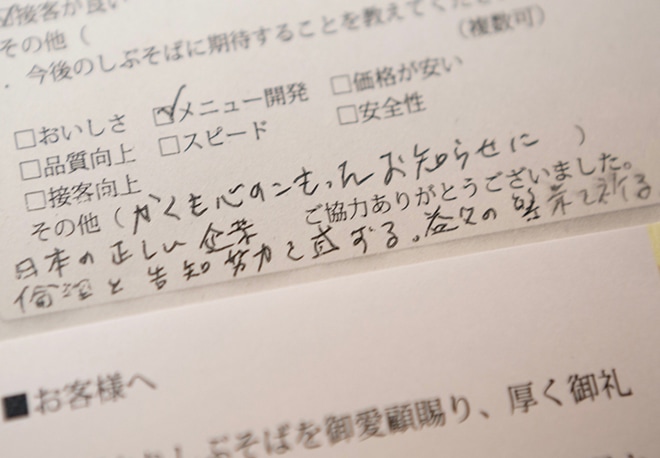 接客が良い
その他（
．今後のしぶそばに期待することを教えてくださ
（複数可）
□おいしさ ☑メニュー開発 □価格が安い
□品質向上 □スピード □安全性
□接客向上
その他（かくも心のこもったお知らせに ）
ご協力ありがとうございました。
日本の正しい企業
倫理と告知努力を感ずる。益々の繁栄を祈る
■お客様へ
しぶそばを御愛顧賜り、厚く御礼